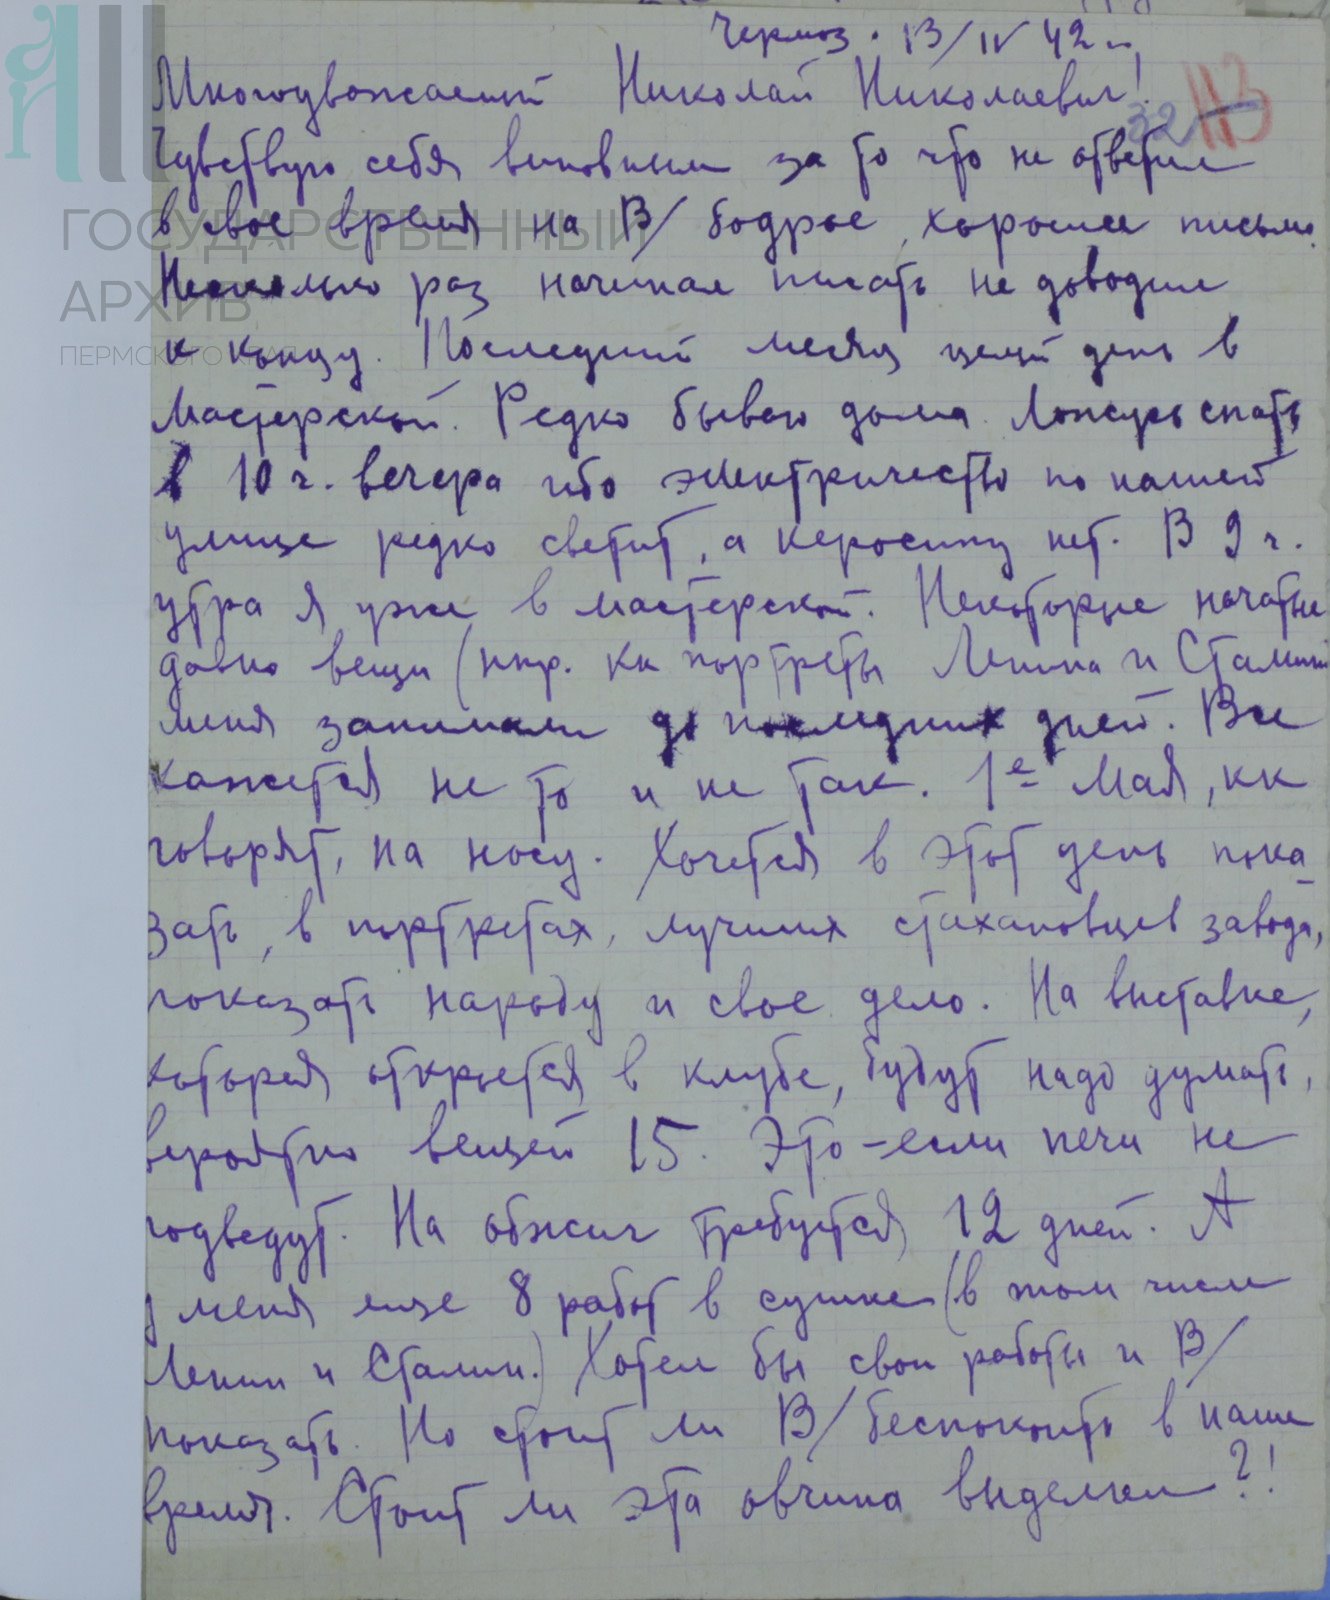 Чермоз. 13/IV 42 г.
Многоуважаемый Николай Николаевич!
32 113
Чувствую себя виновным за то что не ответил
в свое время на В/ бодрое, хорошее письмо.
Несколько раз начинал писать не доводил
к концу. Последний месяц целый день в
мастерской. Редко бываю дома. Ложусь спать
в 10 ч. вечера ибо электричество по нашей
улице редко светит, а керосину нет. В 9 ч.
утра я уже в мастерской. Некоторые начатые
давно вещи (нпр. кк портреты Ленина и Сталина
меня занимали до последних дней. Все
кажется не то и не так. 1е Мая, кк
говорят, на носу. Хочется в этот день пока
зать, в портретах, лучших стахановцев завода,
показать народу и свое дело. На выставке,
которая откроется в клубе, будут надо думать,
вероятно вещей 15. Это - если печи не
подведут. На обжиг требуется 12 дней. А
у меня еще 8 работ в сушке (в том числе
Ленин и Сталин.) Хотел бы свои работы и В/
показать. Но стоит ли В/ беспокоить в наше
время. Стоит ли эта овчина выделки?!
ГОСУДАРСТВЕННЫЙ
АРХИВ
ПЕРМСКОГО КРАЯ